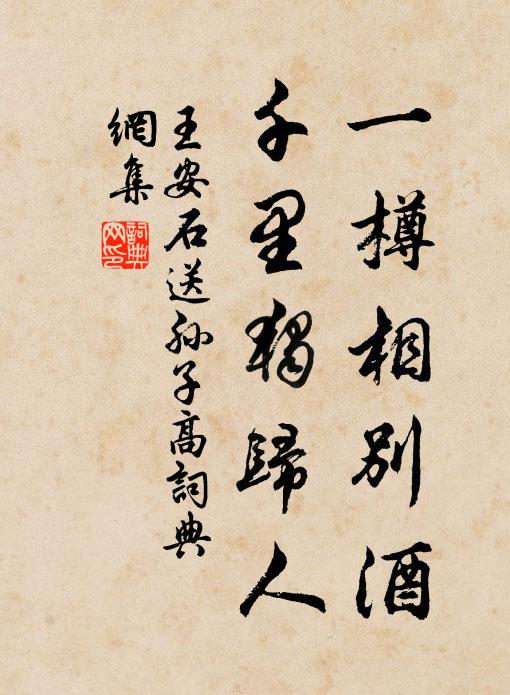 一樽相別酒
千里獨歸人
王安石送孙子高詞典
網集
詞典
网印